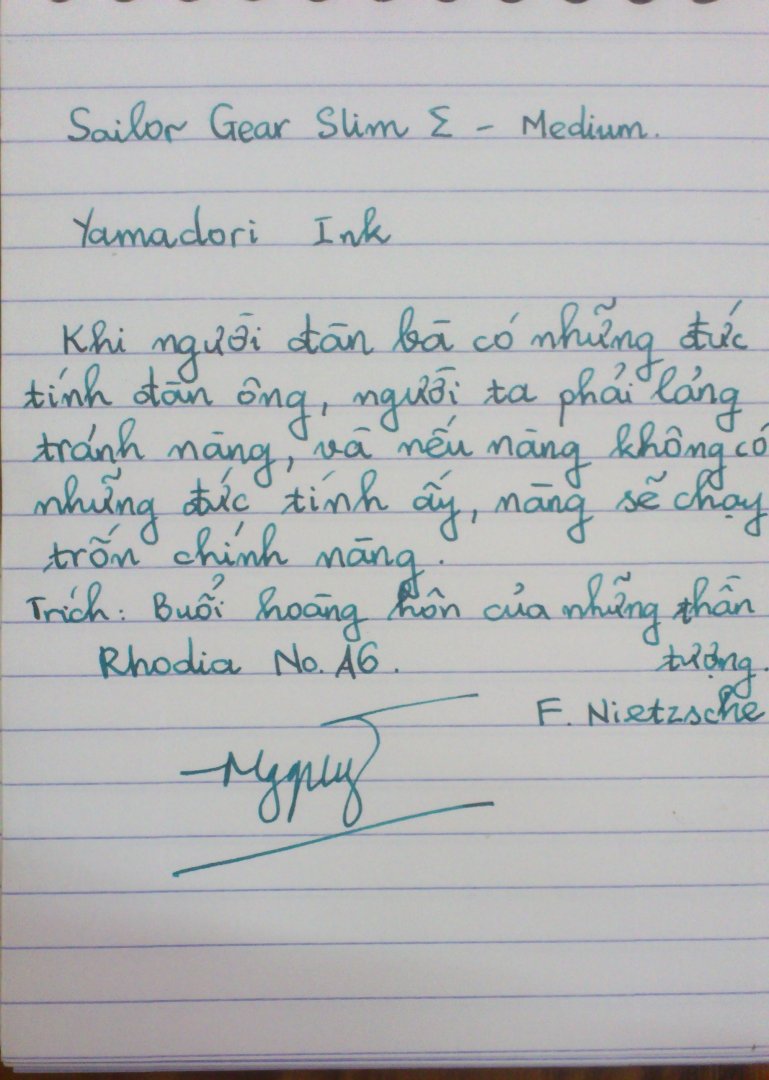 Sailor Gear Slim Σ - Medium.
Yamadori Ink
Khi người đàn bà có những đức
tính đàn ông, người ta phải lảng
tránh nàng, và nếu nàng không có
những đức tính ấy, nàng sẽ chạy
trốn chính nàng.
Trích: Buổi hoàng hôn của những thần
Rhodia No. A6. tượng.
F. Nietzsche